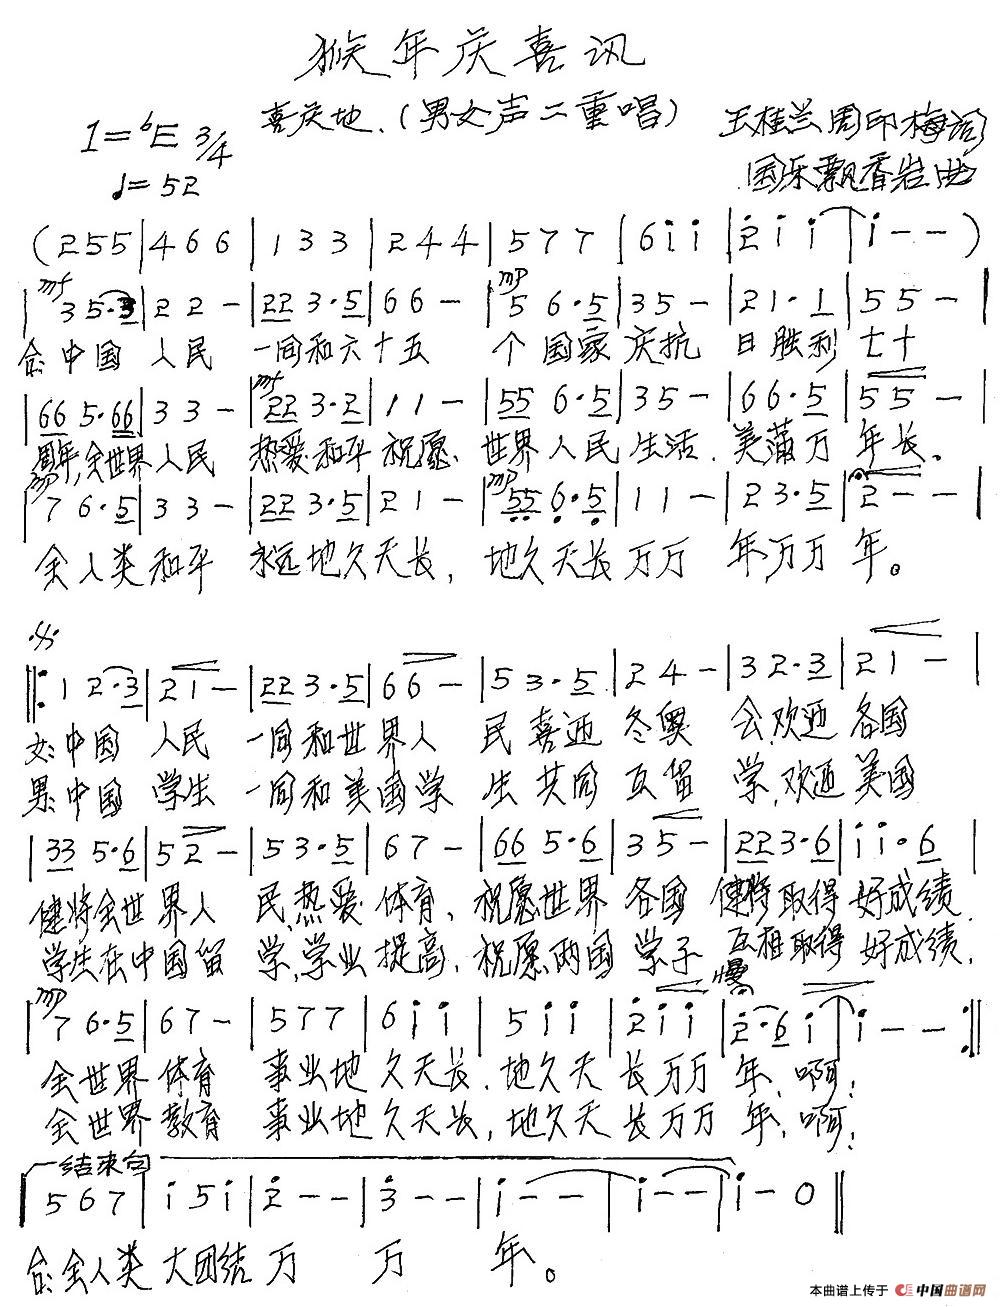 猴年庆喜讯
喜庆地.（男女声二重唱）
王桂兰周印梅词
1=♭E 3/4
国乐飘香岩曲
♩=52
(255|466|133|244|577|6i̇i̇|2̇i̇i̇|i̇--)
mf mp
|35·3|22-|223·5|66-|56·5|35-|21·1|55-|
合:中国 人民 一同和六十五 个国家庆抗 日胜利 七十
mf
|665·66|33-|223·2|11-|556·5|35-|66·5|55-|
周年,全世界人民 热爱和平祝愿. 世界人民生活.美满万年长。
mp mp
|76·5|33-|223·5|21-|5̣5̣6̣·5̣|11-|23·5|2--|
全人类和平 永远地久天长，地久天长万万 年,万万 年。
𝄋
‖:12·3|21-|223·5|66-|53·5|24-|32·3|21-|
女:中国 人民 一同和世界人 民喜迎冬奥 会,欢迎各国
男:中国 学生 一同和美国学 生共同互留 学,欢迎美国
|335·6|52-|53·5|67-|665·6|35-|223·6|i̇i̇·6|
健将全世界人 民,热爱体育，祝愿世界各国 健将取得好成绩.
学生在中国留 学,学业提高.祝愿两国学子 互相取得好成绩.
慢
mp
|76·5|67-|577|6i̇i̇|5i̇i̇|2̇i̇i̇|2̇·6i̇|i̇--:‖
全世界体育 事业地久天长.地久天长万万年，啊;
全世界教育 事业地久天长，地久天长万万年，啊;
结束句
567|i̇5i̇|2̇--|3̇--|i̇--|i̇--|i̇-0‖
合:全人类大团结万 万 年。
本曲谱上传于 中国曲谱网